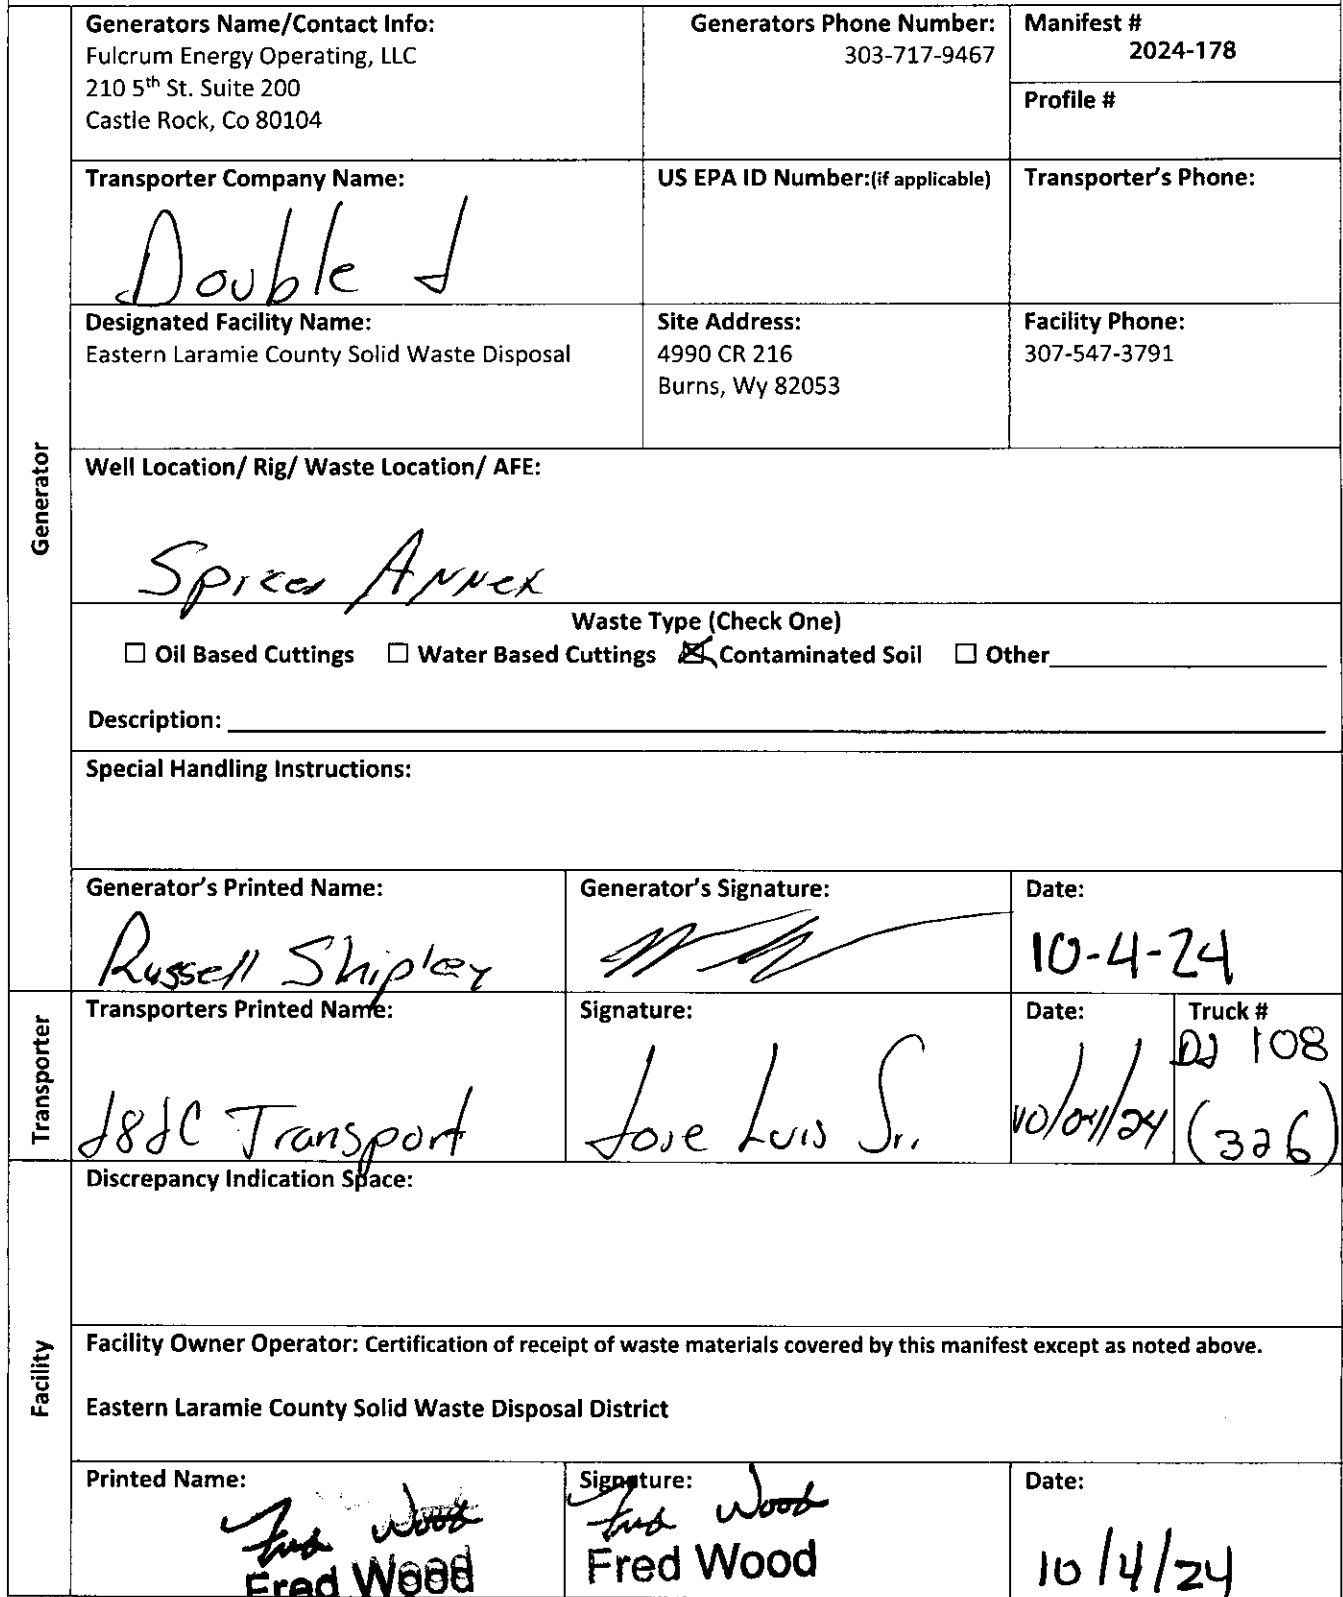 Generators Name/Contact Info:
Fulcrum Energy Operating, LLC
210 5th St. Suite 200
Castle Rock, Co 80104
Generators Phone Number:
303-717-9467
Manifest #
2024-178
Profile #
Transporter Company Name:
Double J
US EPA ID Number:(if applicable)
Transporter's Phone:
Designated Facility Name:
Eastern Laramie County Solid Waste Disposal
Site Address:
4990 CR 216
Burns, Wy 82053
Facility Phone:
307-547-3791
Generator
Well Location/ Rig/ Waste Location/ AFE:
Annex
Waste Type (Check One)
☐ Oil Based Cuttings ☐ Water Based Cuttings ☒ Contaminated Soil ☐ Other
Description:
Special Handling Instructions:
Generator's Printed Name:
Russell Shipley
Generator's Signature:
Date:
10-4-24
Transporter
Transporters Printed Name:
J&JC Transport
Signature:
Jose Luis Sr.
Date:
10/04/24
Truck #
DJ 108
(326)
Facility
Discrepancy Indication Space:
Facility Owner Operator: Certification of receipt of waste materials covered by this manifest except as noted above.
Eastern Laramie County Solid Waste Disposal District
Printed Name:
Fred Wood
Fred Wood
Signature:
Fred Wood
Fred Wood
Date:
10/4/24